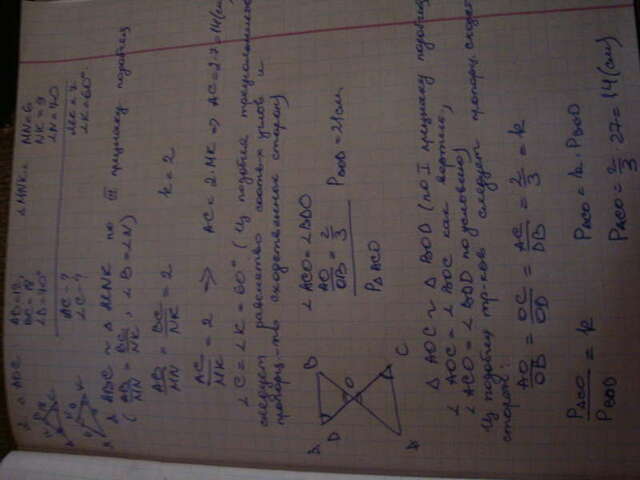 2. △ ABC △ MNK
AB=12 MN=6
BC=18 NK=9
∠B=70° ∠N=70
MK=7
∠K=60°
AC-?
∠C-?
△ ABC ~ △ MNK по II признаку подобия
(AB/MN = BC/NK, ∠B=∠N)
AB/MN = BC/NK = 2 k=2
AC/MK = 2 => AC=2·MK => AC=2·7=14(см)
∠C=∠K=60° (из подобия треугольников
следует равенство соотв-х углов и
сходственных сторон)
∠ACO=∠BDO
AO/OB = 2/3 P BOD=21см
P△ACO
B
O
D
C
△ AOC ~ △ BOD (по I признаку подобия)
∠AOC=∠BOC как вертик.,
∠ACO=∠BOD по условию)
Из подобия тр-ков следует пропорц. сходст.
сторон:
AO/OB = OC/OD = AC/DB = 2/3 = k
P△ACO/P BOD = k P ACO=k·P BOD
P ACO=2/3·27=14(см)